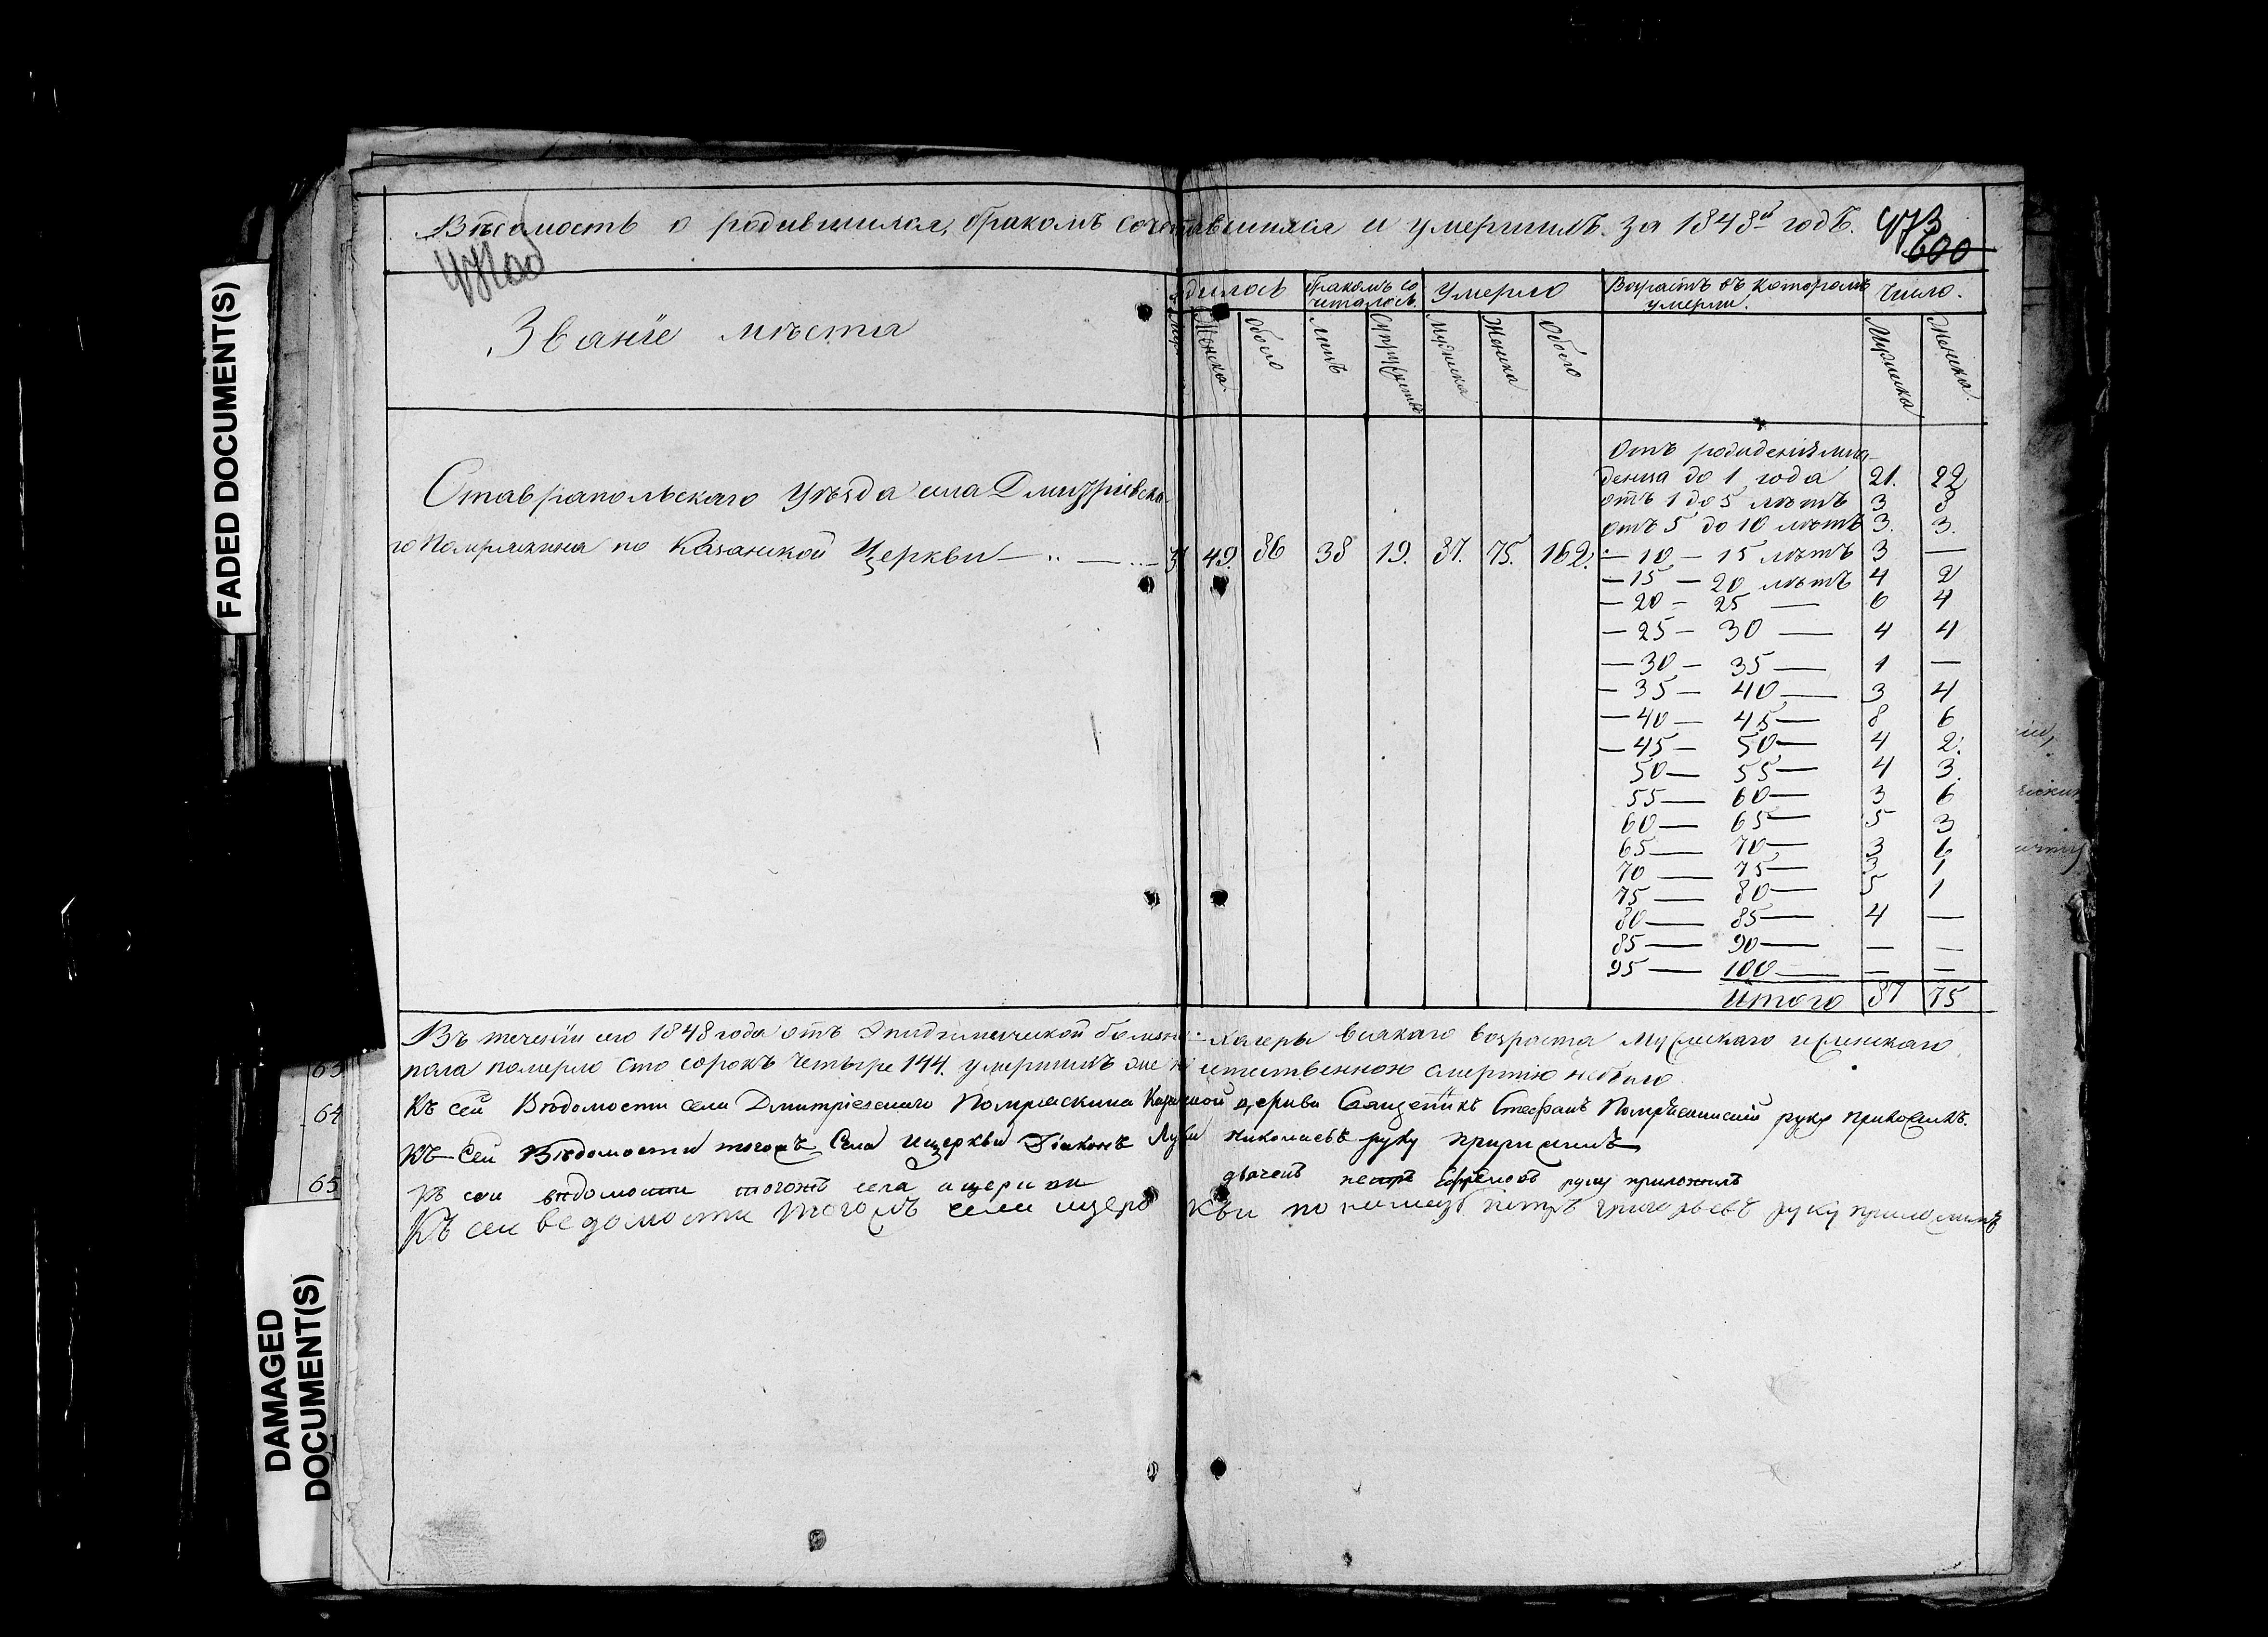 Вѣдомость о родившихся, бракомъ сочетавшихся и умершихъ за 1848й годъ. 473
600
Званїе мѣста
дилось
бракомъ со
читалось.
Умерло
Возрастъ въ которомъ
умерли.
Число.
Женска
Обоего
лицъ
Супружествъ
Мужеска
Женска
Обоего
Мужеска
Женска
Ставрапольскаго Уѣзда села Дмитріевска
го Помряскина по Казанской Церкви 37 49. 86 38 19. 87. 75. 162.
Отъ рожденія мла
денца до 1 года 21. 22
отъ 1 до 5 лѣтъ 3 8
отъ 5 до 10 лѣтъ 3. 3.
— 10 — 15 лѣтъ 3 —
— 15 — 20 лѣтъ 4 2
— 20 — 25 — 6 4
— 25 — 30 — 4 4
— 30 — 35 — 1 —
— 35 — 40 — 3 4
— 40 — 45 — 8 6
— 45 — 50 — 4 2.
50 — 55 — 4 3.
55 — 60 — 3 6
60 — 65 — 5 3
65 — 70 — 3 6
70 — 75 — 3 1
75 — 80 — 5 1
80 — 85 — 4 —
85 — 90 — — —
95 — 100 — — —
Итого 87 75
Въ теченіи сего 1848 года отъ Эпидемической болезни Халеры всякаго возраста мужескаго и женскаго
пола померло сто сорокъ четыре 144. умершихъ же не естественною смертію небыло
Къ сей Вѣдомости села Дмитріевскаго Помряскина Казанской церкви Священникъ Стефанъ Помряскинскій руку приложилъ.
Къ Сей Вѣдомости тогожъ Села и церкви Діаконъ Лука Николаевъ руку приложилъ
Къ сеи вѣдомости тогожъ села и церкви дьячекъ петръ Ефремовъ руку приложилъ
Къ сеи ведомости тогожъ села и церкви пономарь петръ григорьевъ руку приложилъ
FADED DOCUMENT(S)
63
64
65
DAMAGED
DOCUMENT(S)